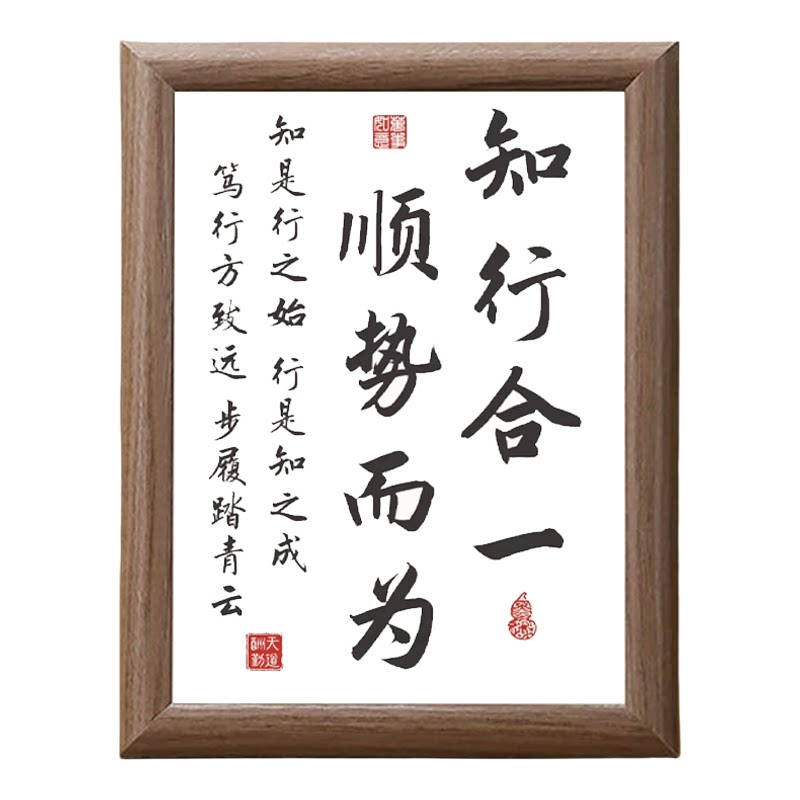 知行合一
顺势而为
万事如意
知是行之始 行是知之成
笃行方致远 步履踏青云
天道酬勤